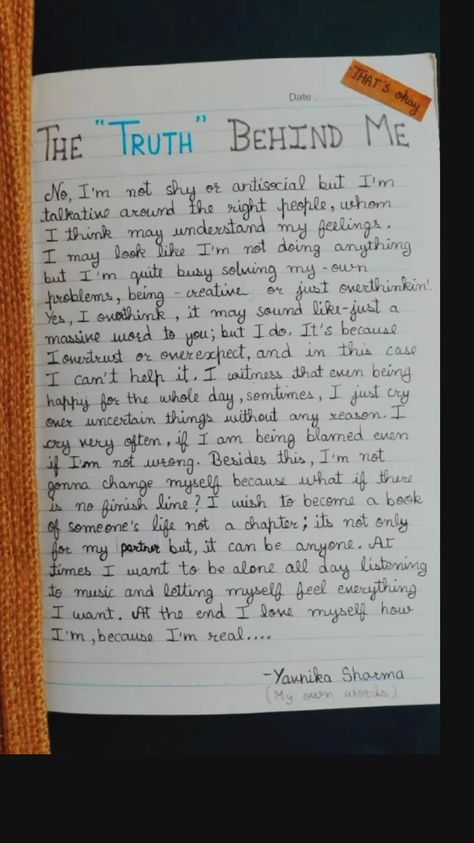 THAT's okay
Date :
THE "TRUTH" BEHIND ME
No, I'm not shy or antisocial but I'm
talkative around the right people, whom
I think may understand my feelings.
I may look like I'm not doing anything
but I'm quite busy solving my - own
problems, being - creative or just overthinkin'.
Yes, I overthink, it may sound like - just a
massive word to you; but I do. It's because
I overtrust or overexpect, and in this case
I can't help it. I witness that even being
happy for the whole day, somtimes, I just cry
over uncertain things without any reason. I
cry very often, if I am being blamed even
if I'm not wrong. Besides this, I'm not
gonna change myself because what if there
is no finish line? I wish to become a book
of someone's life not a chapter; its not only
for my partner but, it can be anyone. At
times I want to be alone all day listening
to music and letting myself feel everything
I want. At the end I love myself how
I'm, because I'm real....
- Yavnika Sharma
(My own words)